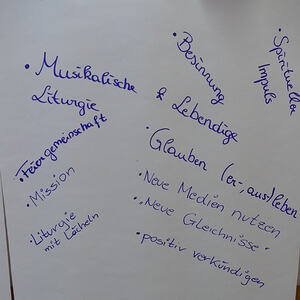 • Musikalische
Liturgie
• Feiergemeinschaft
• Mission
• Liturgie
mit Lächeln
• Besinnung
& Lebendige
• Spiritueller
Impuls
• Glauben (er-, aus)leben
• Neue Medien nutzen
• „Neue Gleichnisse“
• positiv verkündigen